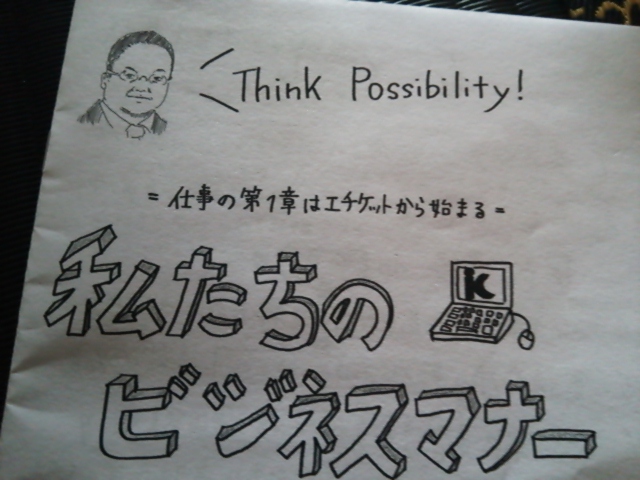 Think Possibility!
= 仕事の第1章はエチケットから始まる =
私たちの
k
ビジネスマナー